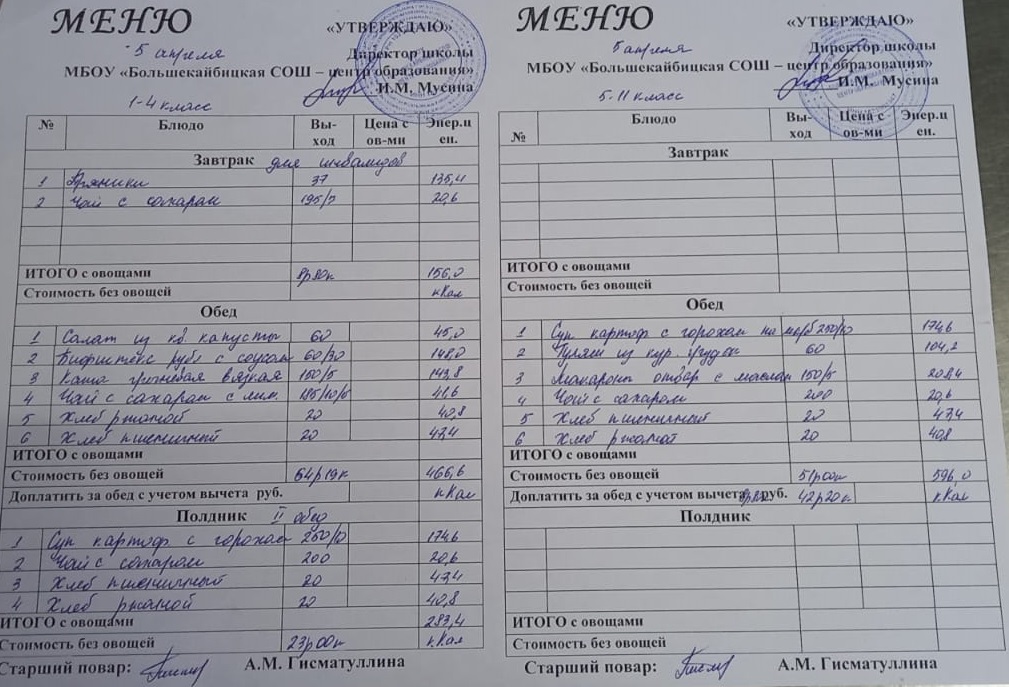 МЕНЮ
«УТВЕРЖДАЮ»
5 апреля
Директор школы
МБОУ «Большекайбицкая СОШ – центр образования»
И.М. Мусина
1-4 класс
№ Блюдо Вы-ход Цена с ов-ми Энер.ц ен.
Завтрак для инвалидов
1 Пряники 37 135,4
2 Чай с сахаром 195/5 20,6
ИТОГО с овощами 8р80к 156,0
Стоимость без овощей кКал
Обед
1 Салат из кв. капусты 60 45,0
2 Бифштекс рубл с соусом 60/30 148,0
3 Каша гречневая вязкая 150/5 143,8
4 Чай с сахаром с лим. 185/10/5 41,6
5 Хлеб ржаной 20 40,8
6 Хлеб пшеничный 20 47,4
ИТОГО с овощами
Стоимость без овощей 64р19к 466,6
Доплатить за обед с учетом вычета руб. кКал
Полдник II обед
1 Суп картоф с горохом 250/10 174,6
2 Чай с сахаром 200 20,6
3 Хлеб пшеничный 20 47,4
4 Хлеб ржаной 20 40,8
ИТОГО с овощами 283,4
Стоимость без овощей 23р00к кКал
Старший повар: А.М. Гисматуллина
МЕНЮ
«УТВЕРЖДАЮ»
5 апреля
Директор школы
МБОУ «Большекайбицкая СОШ – центр образования»
И.М. Мусина
5-11 класс
№ Блюдо Вы-ход Цена с ов-ми Энер.ц ен.
Завтрак
ИТОГО с овощами
Стоимость без овощей
Обед
1 Суп картоф с горохом на м/б 250/10 174,6
2 Гуляш из кур. грудок 60 104,2
3 Макароны отвар с маслом 150/5 208,4
4 Чай с сахаром 200 20,6
5 Хлеб пшеничный 20 47,4
6 Хлеб ржаной 20 40,8
ИТОГО с овощами
Стоимость без овощей 51р00к 596,0
Доплатить за обед с учетом вычета 8р80к руб. 42р20к кКал
Полдник
ИТОГО с овощами
Стоимость без овощей
Старший повар: А.М. Гисматуллина